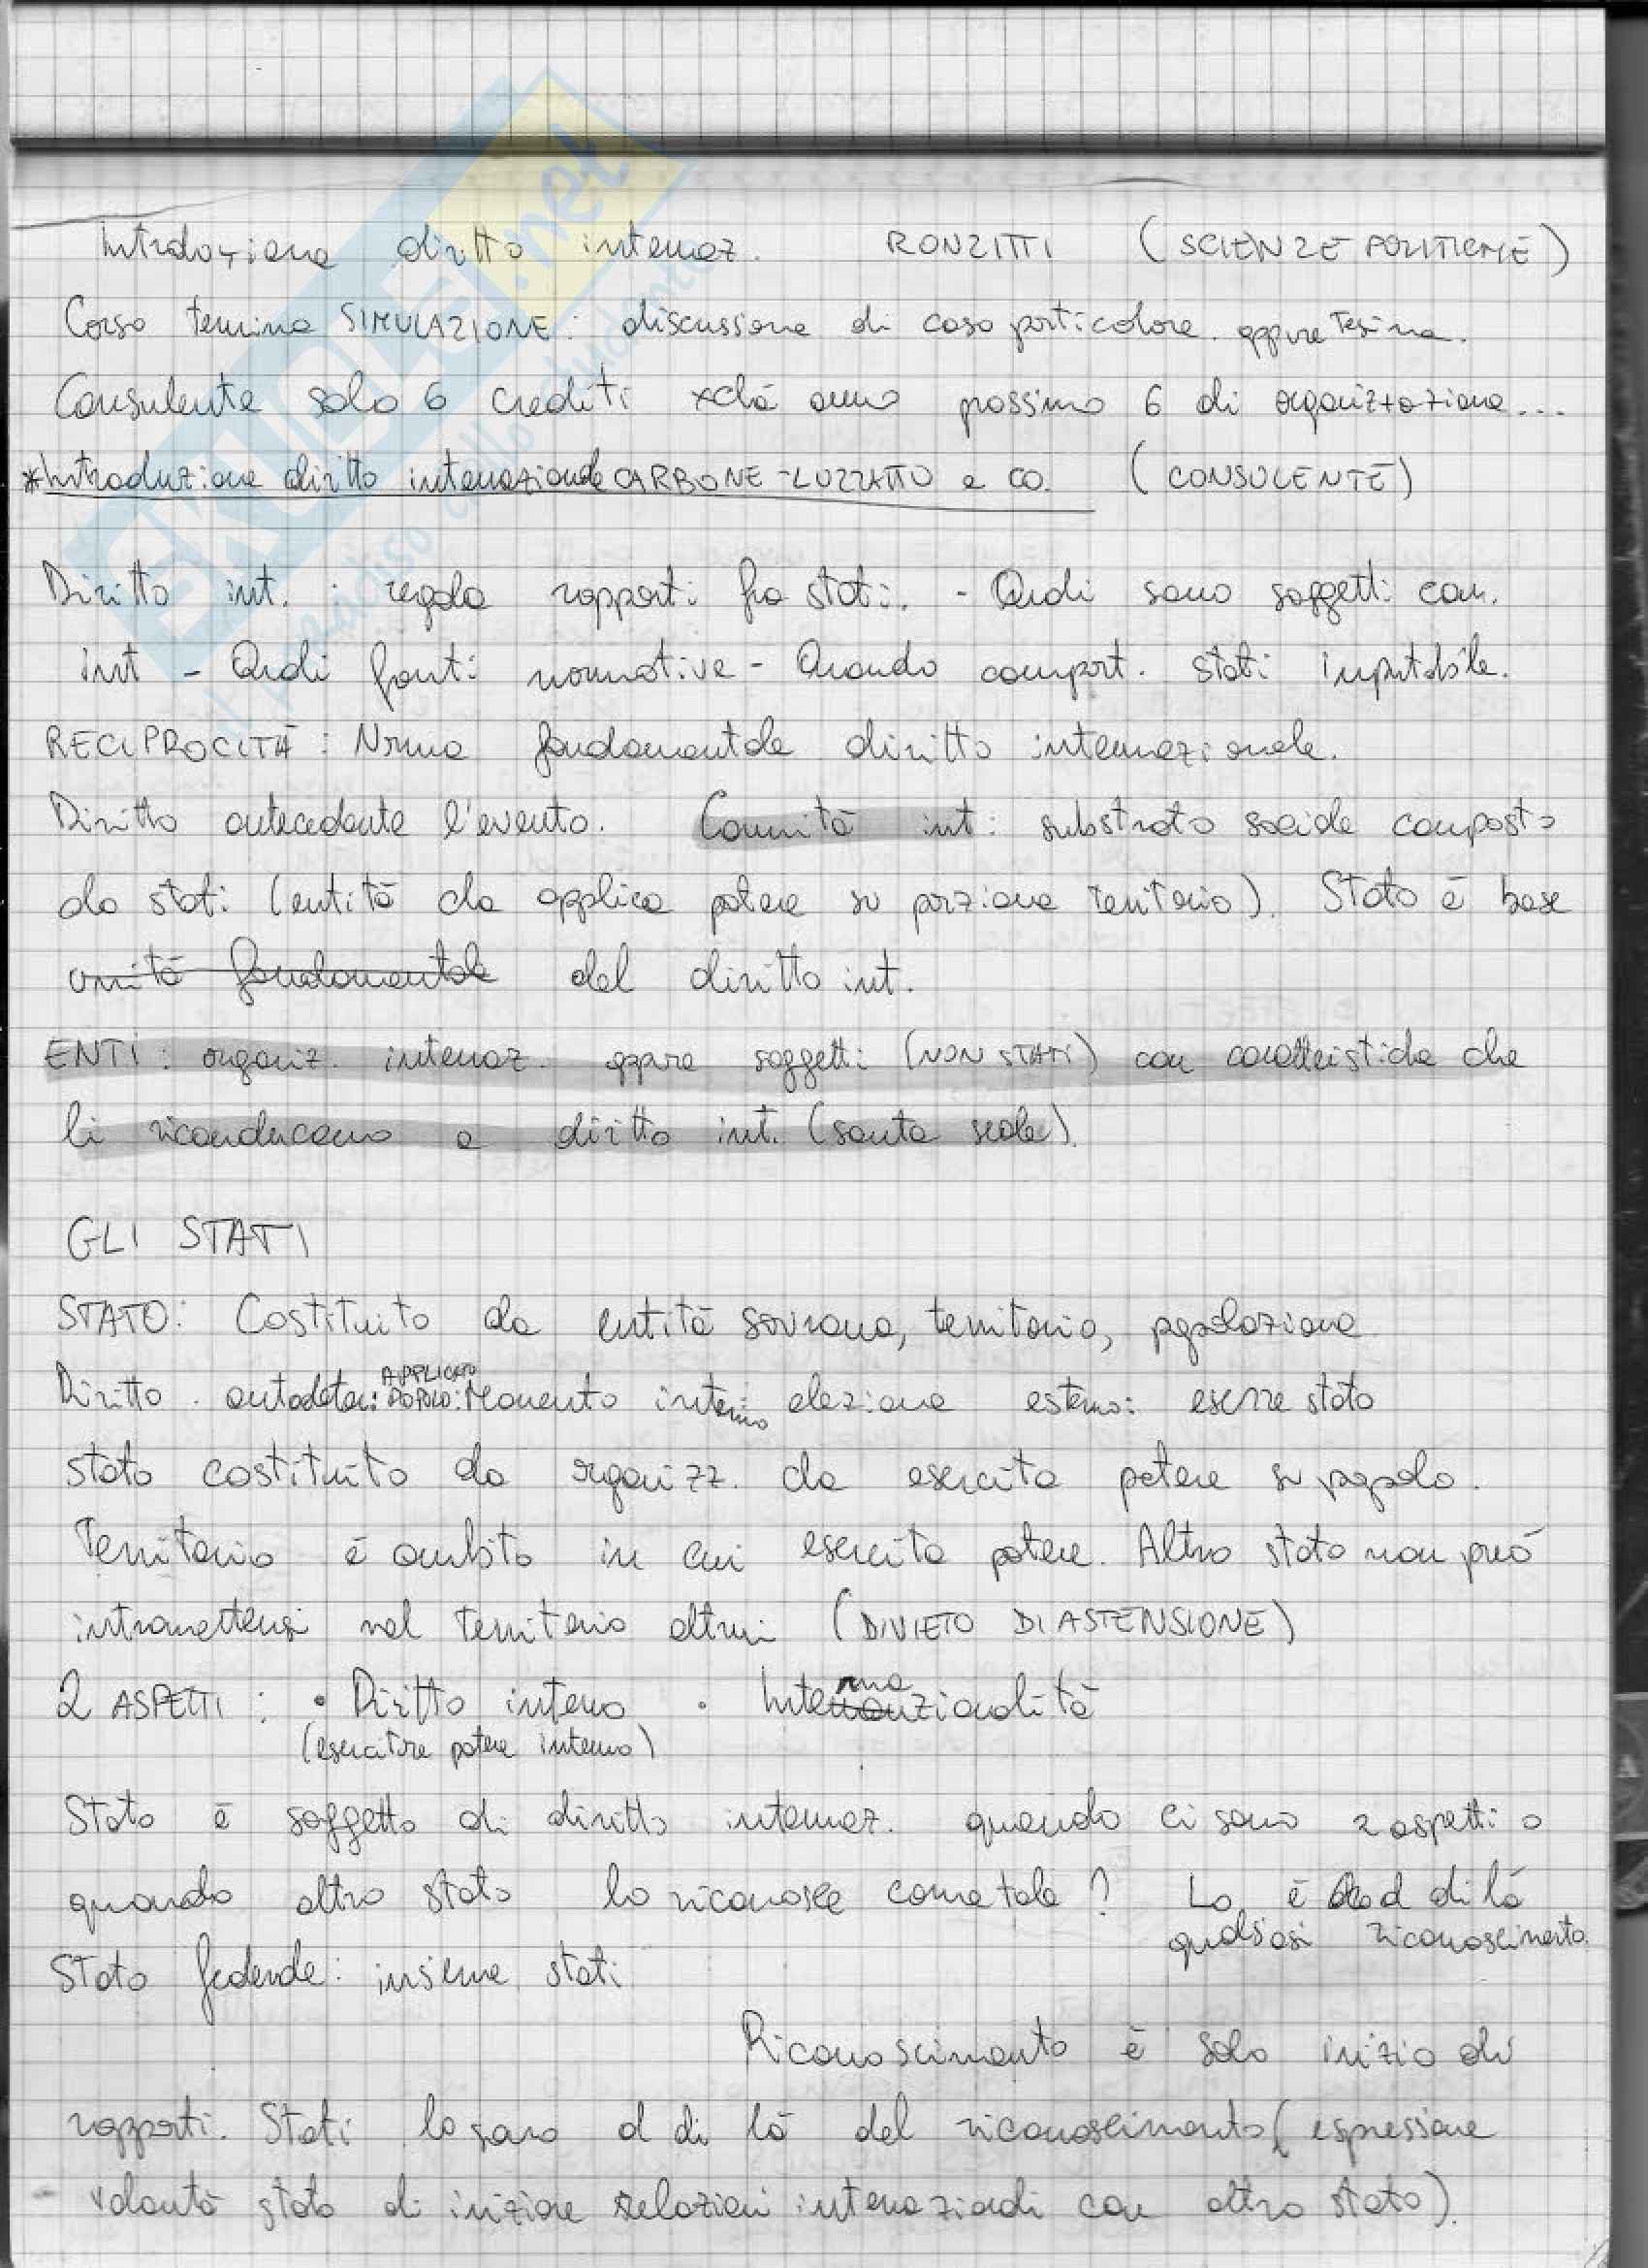 Introduzione diritto internaz. RONZITTI (SCIENZE POLITICHE)
Corso termina SIMULAZIONE: discussione di caso particolare. oppure Tesina.
Consulente solo 6 crediti xché anno prossimo 6 di organizzazione...
*Introduzione diritto internazionale CARBONE-LUZZATTO e CO. (CONSULENTE)
Diritto int. : regola rapporti fra stati. - Quali sono soggetti com.
int - Quali fonti normative - Quando comport. stati imputabile.
RECIPROCITÀ: Norma fondamentale diritto internazionale.
Diritto antecedente l'evento. Comunità int: substrato sociale composto
da stati (entità che applica potere su porzione territorio). Stato è base
unità fondamentale del diritto int.
ENTI: organiz. internaz. oppure soggetti (NON STATI) con caratteristiche che
li riconducano a diritto int. (santa sede).
GLI STATI
STATO: Costituito da entità sovrana, territorio, popolazione
Diritto autodeter: APPLICATO POPOLO: Momento interno: elezione esterno: essere stato
stato costituito da organizz. che esercita potere su popolo.
Territorio è ambito in cui esercita potere. Altro stato non può
intromettersi nel territorio altrui (DIVIETO DI ASTENSIONE)
2 ASPETTI: • Diritto interno • Internazionalità
(esercitare potere interno)
Stato è soggetto di diritto internaz. quando ci sono 2 aspetti o
quando altro stato lo riconosce come tale? Lo è al di là
qualsiasi riconoscimento.
Stato federale: insieme stati
Riconoscimento è solo inizio di
rapporti. Stati lo sono al di là del riconoscimento (espressione
volontà stato di iniziare relazioni internazionali con altro stato).
SKUOLA.net
il paradiso dello studente